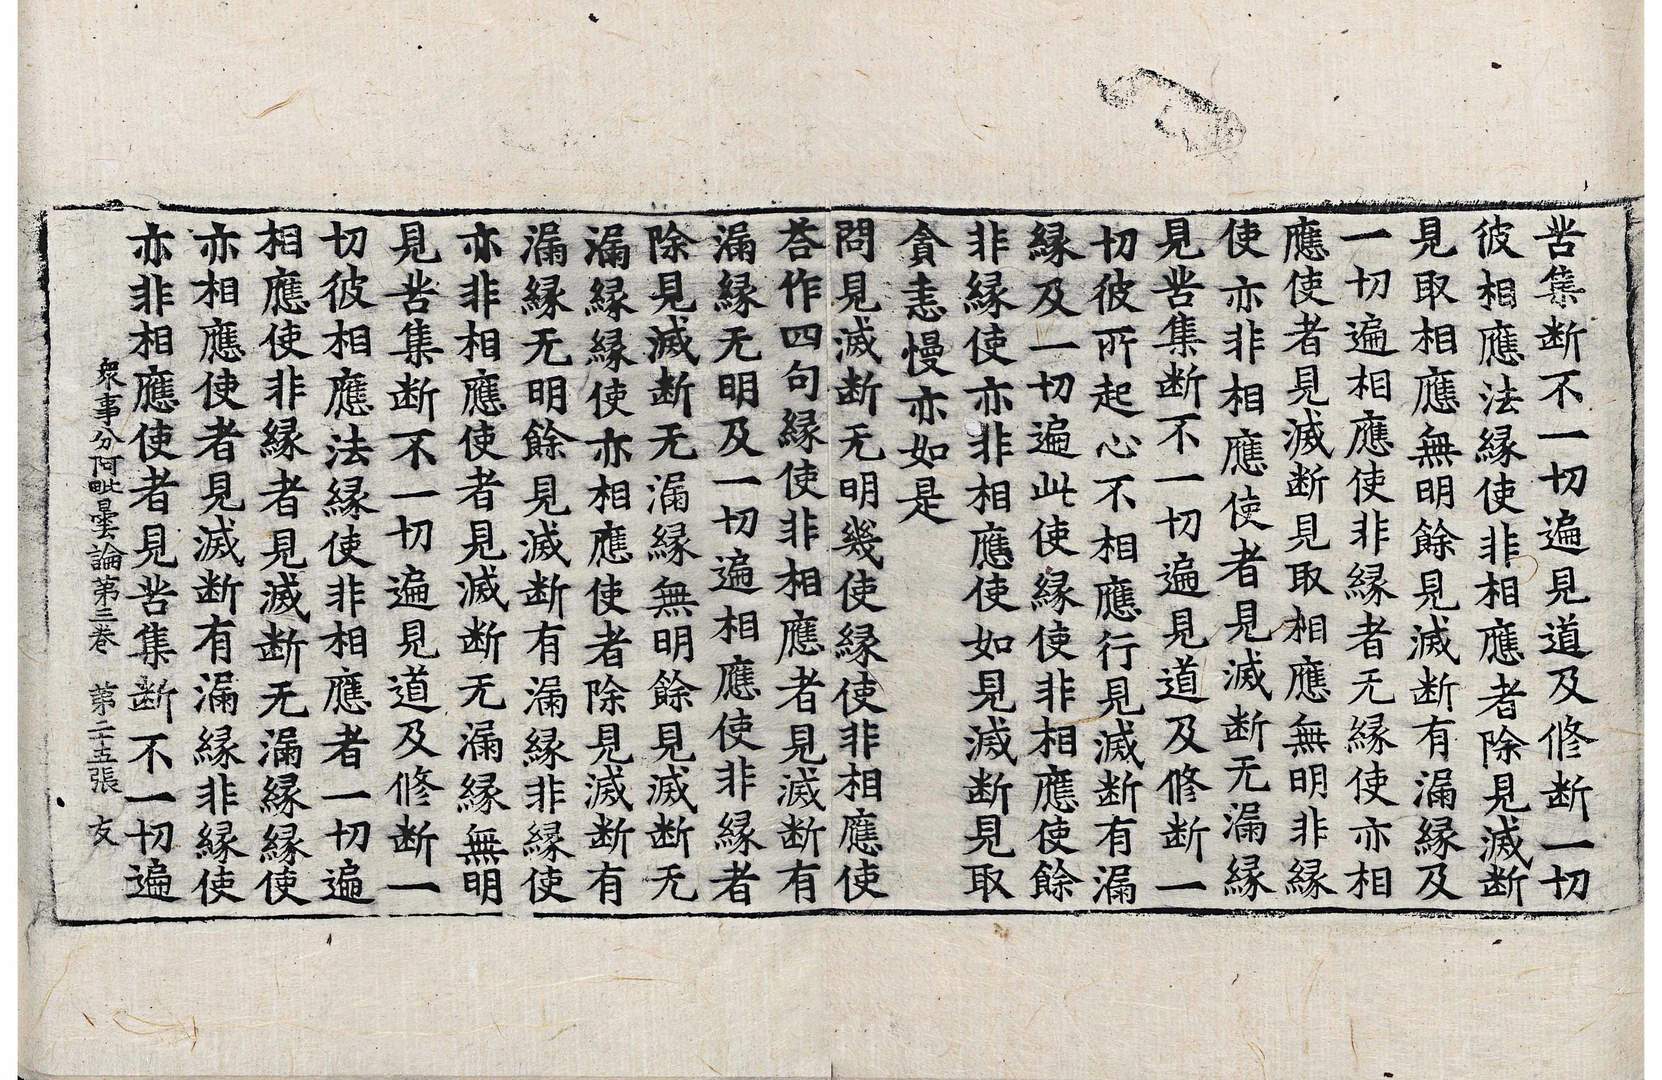 苦集断不一切遍見道及修断一切
彼相應法縁使非相應者除見滅断
見取相應無明餘見滅断有漏縁及
一切遍相應使非縁者无縁使亦相
應使者見滅断見取相應無明非縁
使亦非相應使者見滅断无漏縁
見苦集断不一切遍見道及修断一
切彼所起心不相應行見滅断有漏
縁及一切遍此使縁使非相應使餘
非縁使亦非相應使如見滅断見取
貪恚慢亦如是
問見滅断无明幾使縁使非相應使
荅作四句縁使非相應者見滅断有
漏縁无明及一切遍相應使非縁者
除見滅断无漏縁無明餘見滅断无
漏縁縁使亦相應使者除見滅断有
漏縁无明餘見滅断有漏縁非縁使
亦非相應使者見滅断无漏縁無明
見苦集断不一切遍見道及修断一
切彼相應法縁使非相應者一切遍
相應使非縁者見滅断无漏縁縁使
亦相應使者見滅断有漏縁非縁使
亦非相應使者見苦集断不一切遍
衆事分阿毗曇論第三卷 第二十五張 友